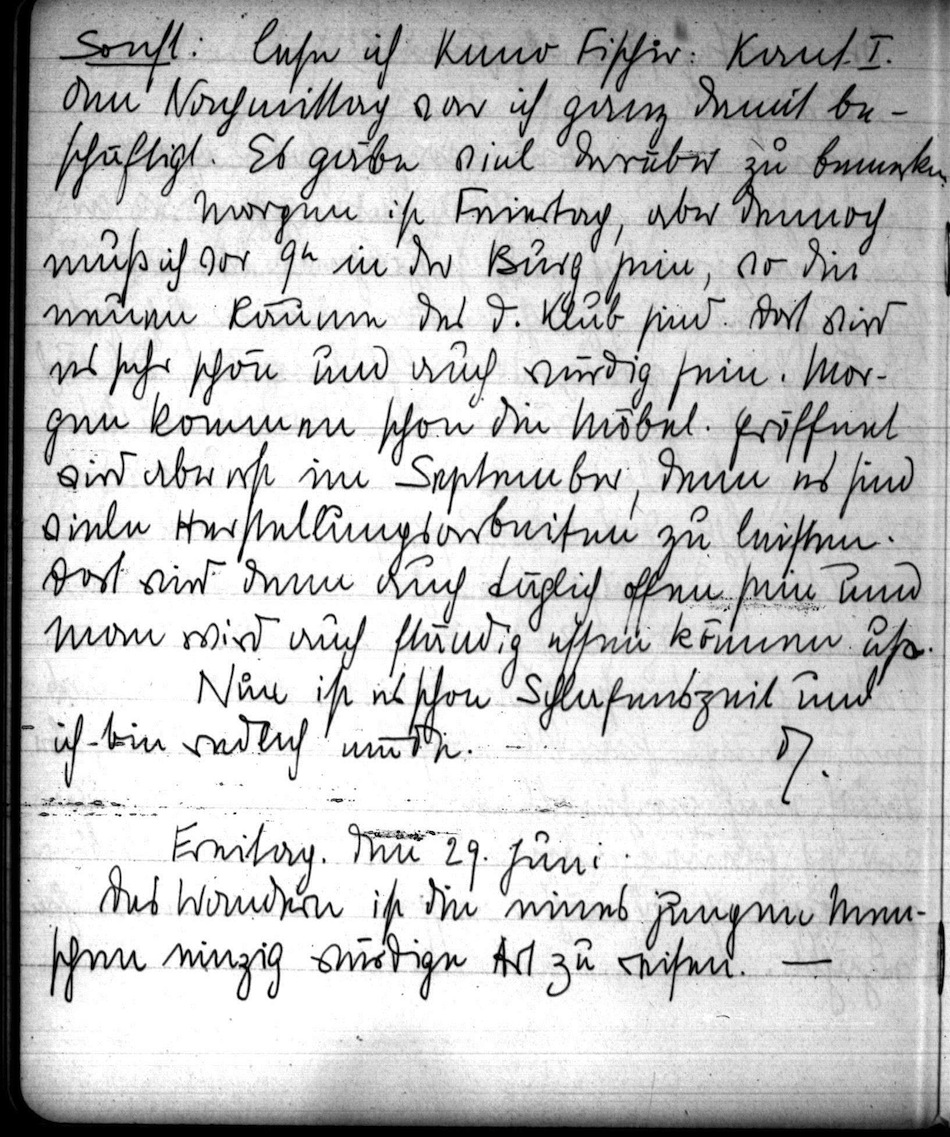 Sonst: lese ich Kuno Fischer: Kant I.
Den Nachmittag war ich ganz damit be-
schäftigt. Es gäbe viel darüber zu bemerken
Morgen ist Feiertag, aber dennoch
muß ich vor 9h in der Burg sein, wo die
neuen Räume des d. Klub sind. Dort wird
es sehr schön und auch würdig sein. Mor-
gen kommen schon die Möbel. Eröffnet
wird aber erst im September, denn es sind
viele Herstellungsarbeiten zu leisten.
Dort wird dann auch täglich offen sein und
man wird auch ständig essen können usw.
Nun ist es schon Schlafenszeit und
ich bin redlich müde. -
Freitag. den 29. Juni.
Das Wandern ist die eines jungen Men-
schen einzig würdige Art zu reisen. —